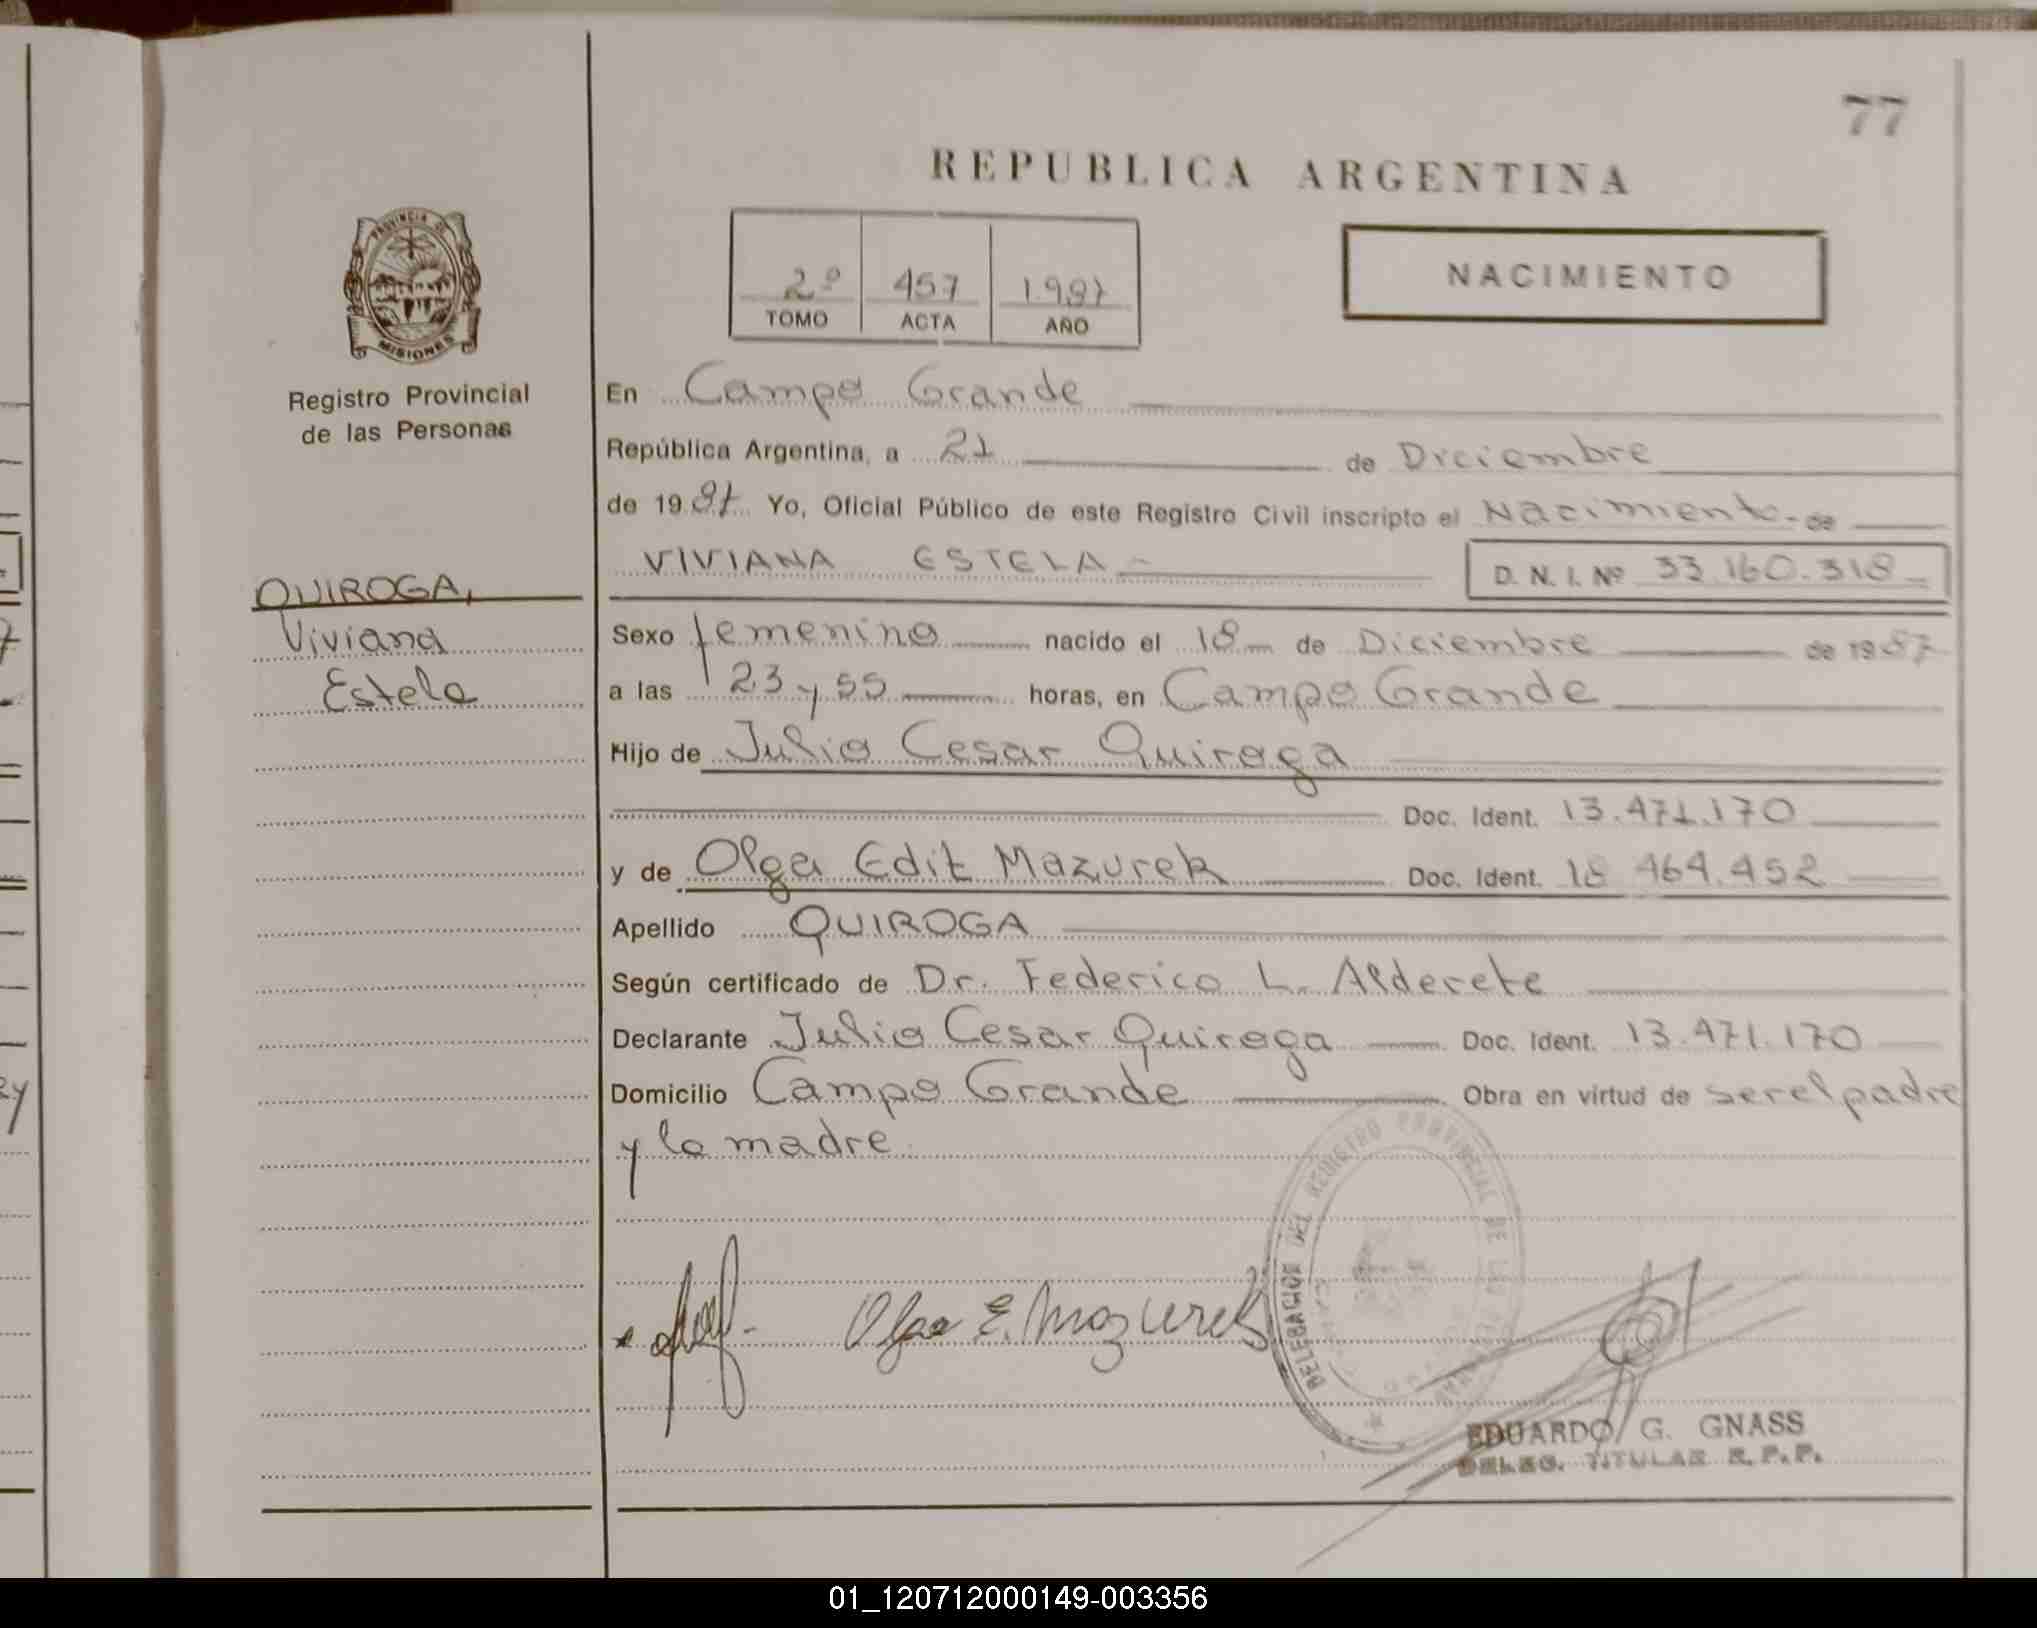 77
REPUBLICA ARGENTINA
PROVINCIA DE
MISIONES
Registro Provincial
de las Personas
2º 457 1.987
TOMO ACTA AÑO
NACIMIENTO
En Campo Grande
República Argentina, a 21 de Diciembre
de 1987 Yo, Oficial Público de este Registro Civil inscripto el Nacimiento de
VIVIANA ESTELA D. N. I. Nº 33.160.318
QUIROGA,
Viviana
Estela
Sexo femenino nacido el 18 de Diciembre de 1987
a las 23 y 55 horas, en Campo Grande
Hijo de Julio Cesar Quiroga
Doc. Ident. 13.471.170
y de Olga Edit Mazurek Doc. Ident. 18 464.452
Apellido QUIROGA
Según certificado de Dr. Federico L. Alderete
Declarante Julio Cesar Quiroga Doc. Ident. 13.471.170
Domicilio Campo Grande Obra en virtud de ser el padre
y la madre
Olga E. Mazurek
DELEGACION DEL REGISTRO PROVINCIAL DE LAS PERSONAS
EDUARDO G. GNASS
DELEG. TITULAR R. P. P.
01_120712000149-003356